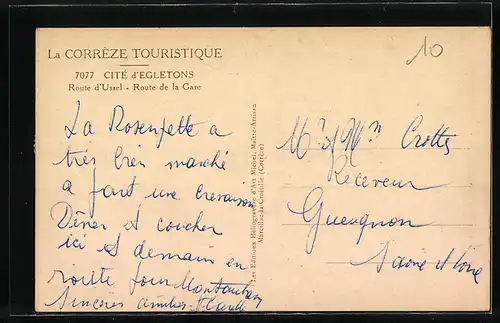 10
La CORRÈZE TOURISTIQUE
7077 CITÉ d'EGLETONS
Route d'Ussel - Route de la Gare
La Rosengette a
très bien marché
a part une crevaison
Dîner et coucher
ici et demain en
route pour Montauban
Sincères amitiés
Les Editions Héliogravure d'Art Michel, Maître-Artisan
Marcillac-la-Croisille (Corrèze)
Mr et Mme Crotte
Receveur
Gueugnon
Saône et Loire